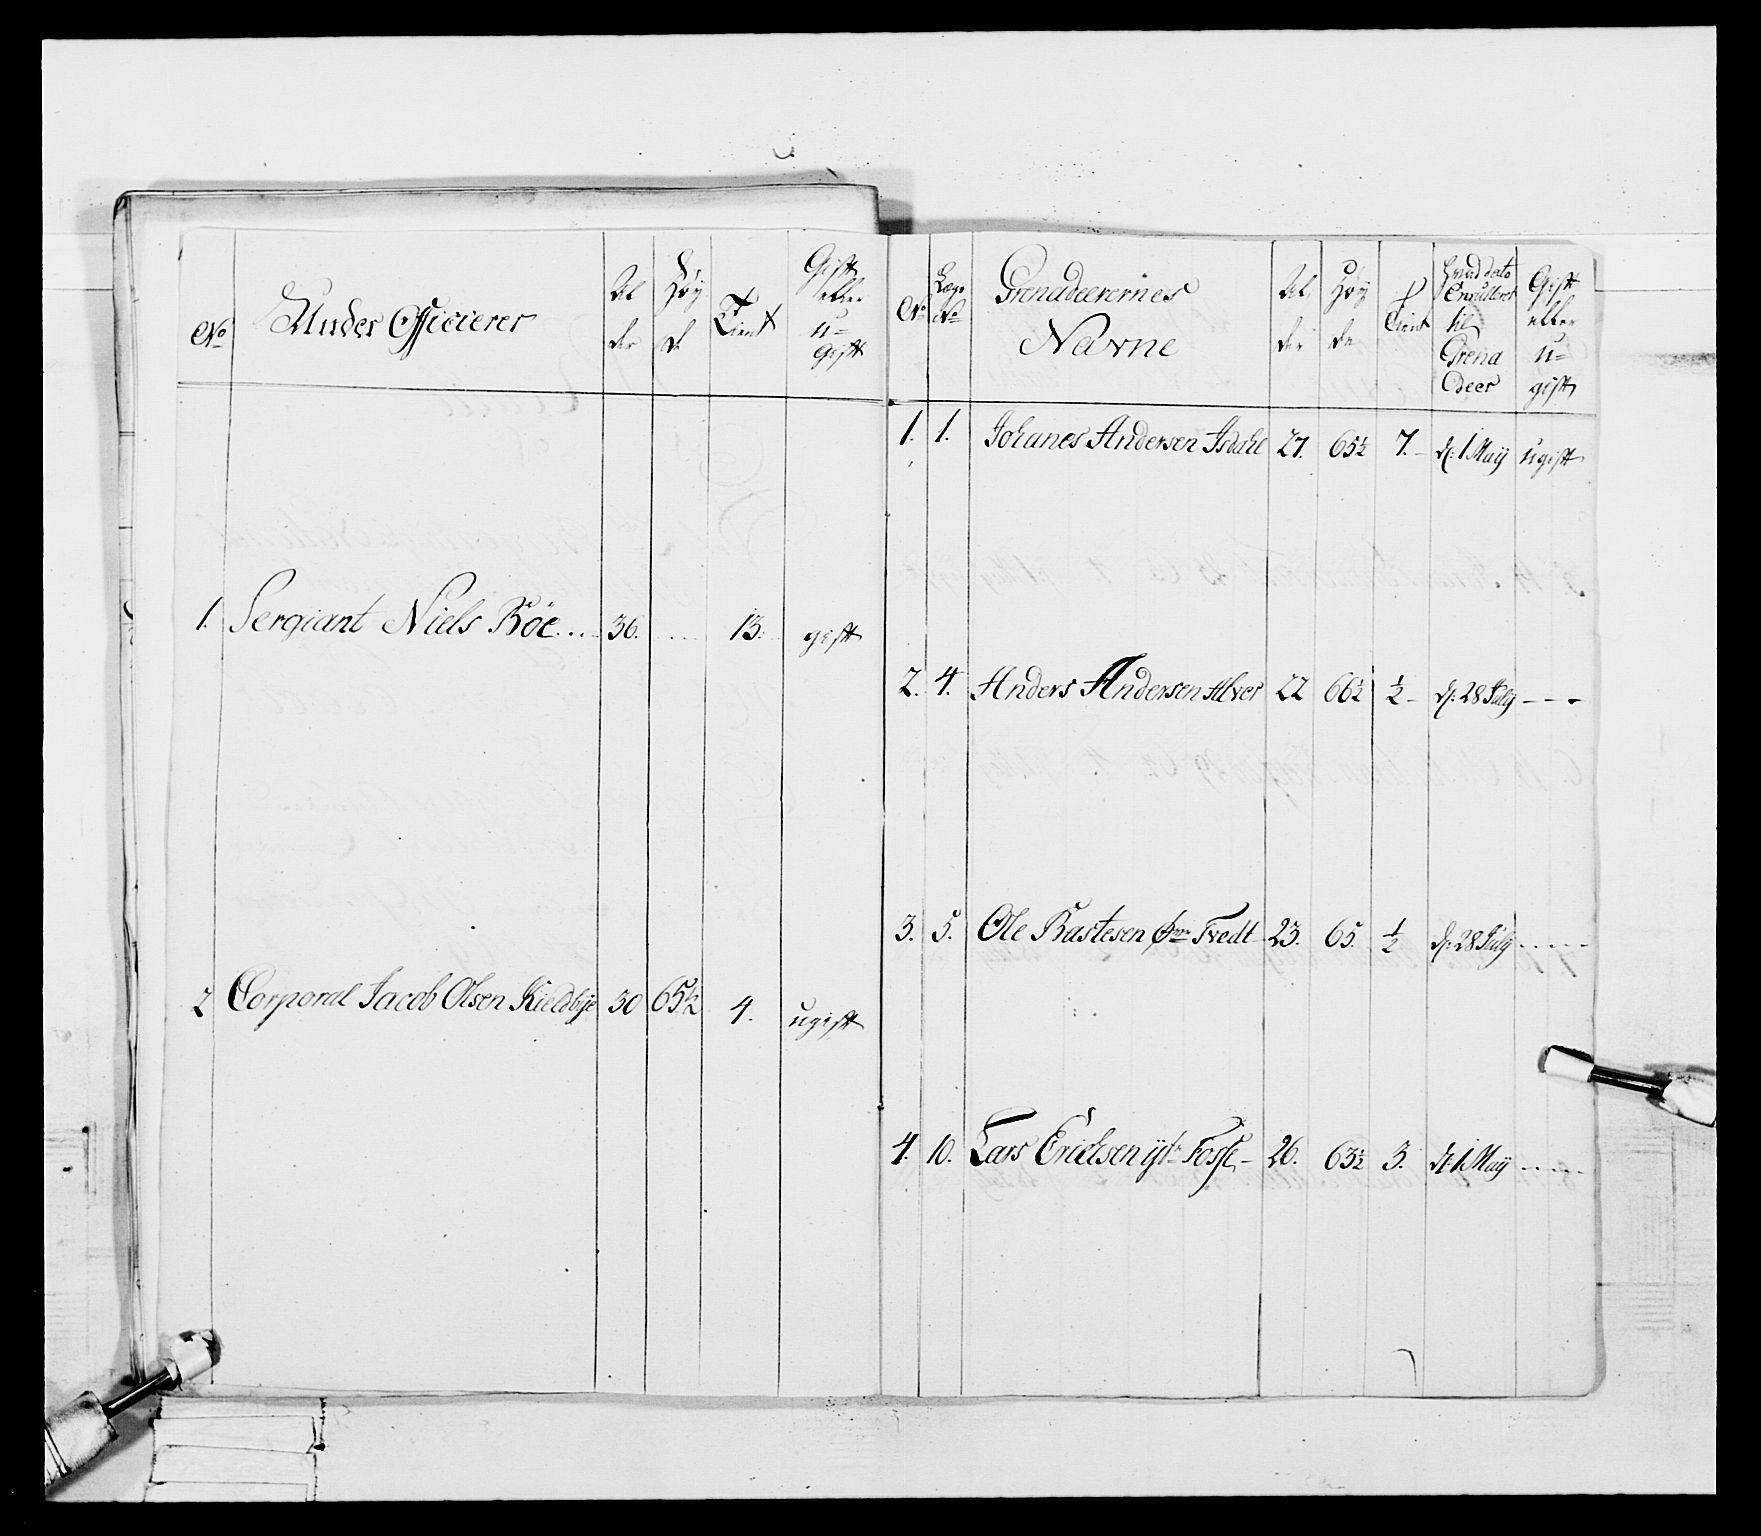 No
Under Officierer
Al
der
Høy
de
Tient
Gift
eller
u=
gift
1. Sergiant Niels Röe... 36. .... 13. gift
2 Corporal Jacob Olsen Kieldbye 30 65½ 4. ugift
No
Lægs
No
Grenadeerernes
Navne
Al
der
Høy
de
Tient
Hvad dato
Enrulleret
til
Grena
deer
Gift
eller
u=
gift
1. 1. Johanes Andersen Isdahl 27. 65½ 7. d: 1 May ugift
2. 4. Anders Andersen Alver 22 66½ ½ d: 28 July ---
3. 5. Ole Rastesen Tvedt 23. 65. ½ d: 28 July -----
4. 10. Lars Erichsen Fosse 26. 63½ 3. d: 1 May -----